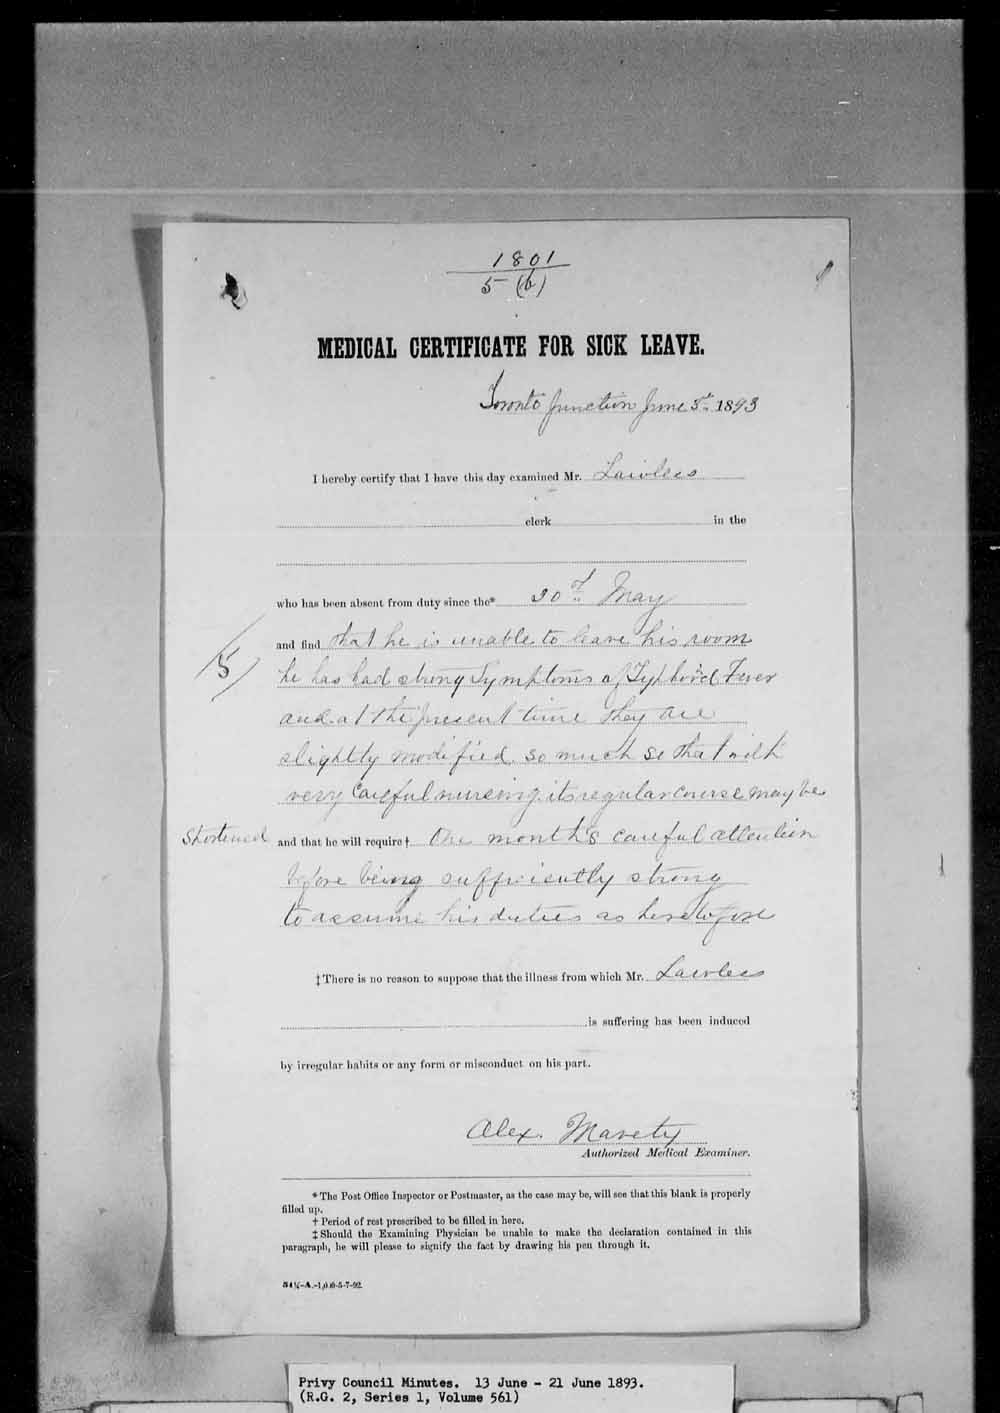 1801
5 (b)
MEDICAL CERTIFICATE FOR SICK LEAVE.
Toronto Junction June 5th 1893
I hereby certify that I have this day examined Mr. Lawless
clerk in the
who has been absent from duty since the* 30th May
and find that he is unable to leave his room
he has had strong Symptoms of Typhoid Fever
and at the present time they are
slightly modified so much so that with
very careful nursing its regular course may be
Shortened and that he will require † One month's careful attention
before being sufficiently strong
to assume his duties as heretofore
5
‡ There is no reason to suppose that the illness from which Mr. Lawless
is suffering has been induced
by irregular habits or any form or misconduct on his part.
Alex. Mavety
Authorized Medical Examiner.
* The Post Office Inspector or Postmaster, as the case may be, will see that this blank is properly
filled up.
† Period of rest prescribed to be filled in here.
‡ Should the Examining Physician be unable to make the declaration contained in this
paragraph, he will please to signify the fact by drawing his pen through it.
Privy Council Minutes. 13 June - 21 June 1893.
(R.G. 2, Series 1, Volume 561)